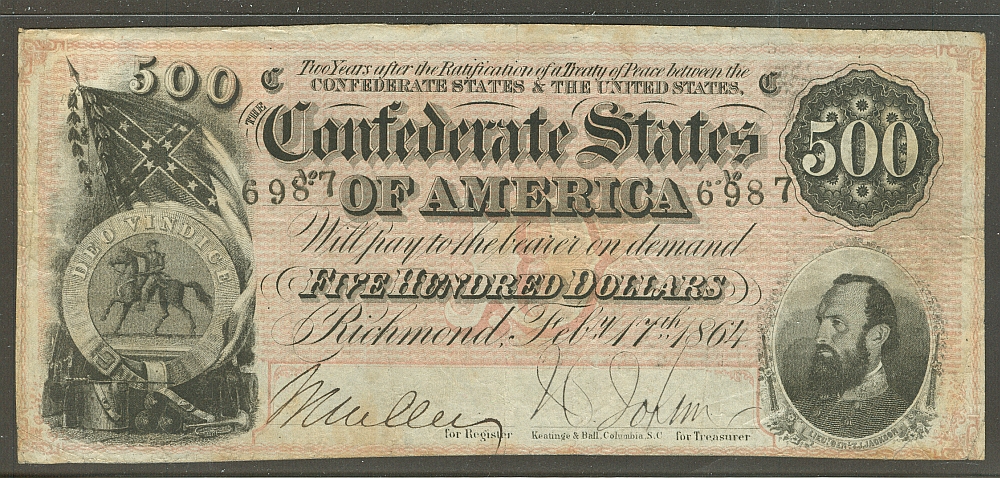 500 C Two Years after the Ratification of a Treaty of Peace between the C
CONFEDERATE STATES & THE UNITED STATES.
THE Confederate States 500
No. 6987 OF AMERICA No. 6987
DEO VINDICE
Will pay to the bearer on demand
FIVE HUNDRED DOLLARS
Richmond, Feb.y 17th 1864
for Register Keatinge & Ball, Columbia, S.C. for Treasurer
LIEUT. GEN. T. J. JACKSON